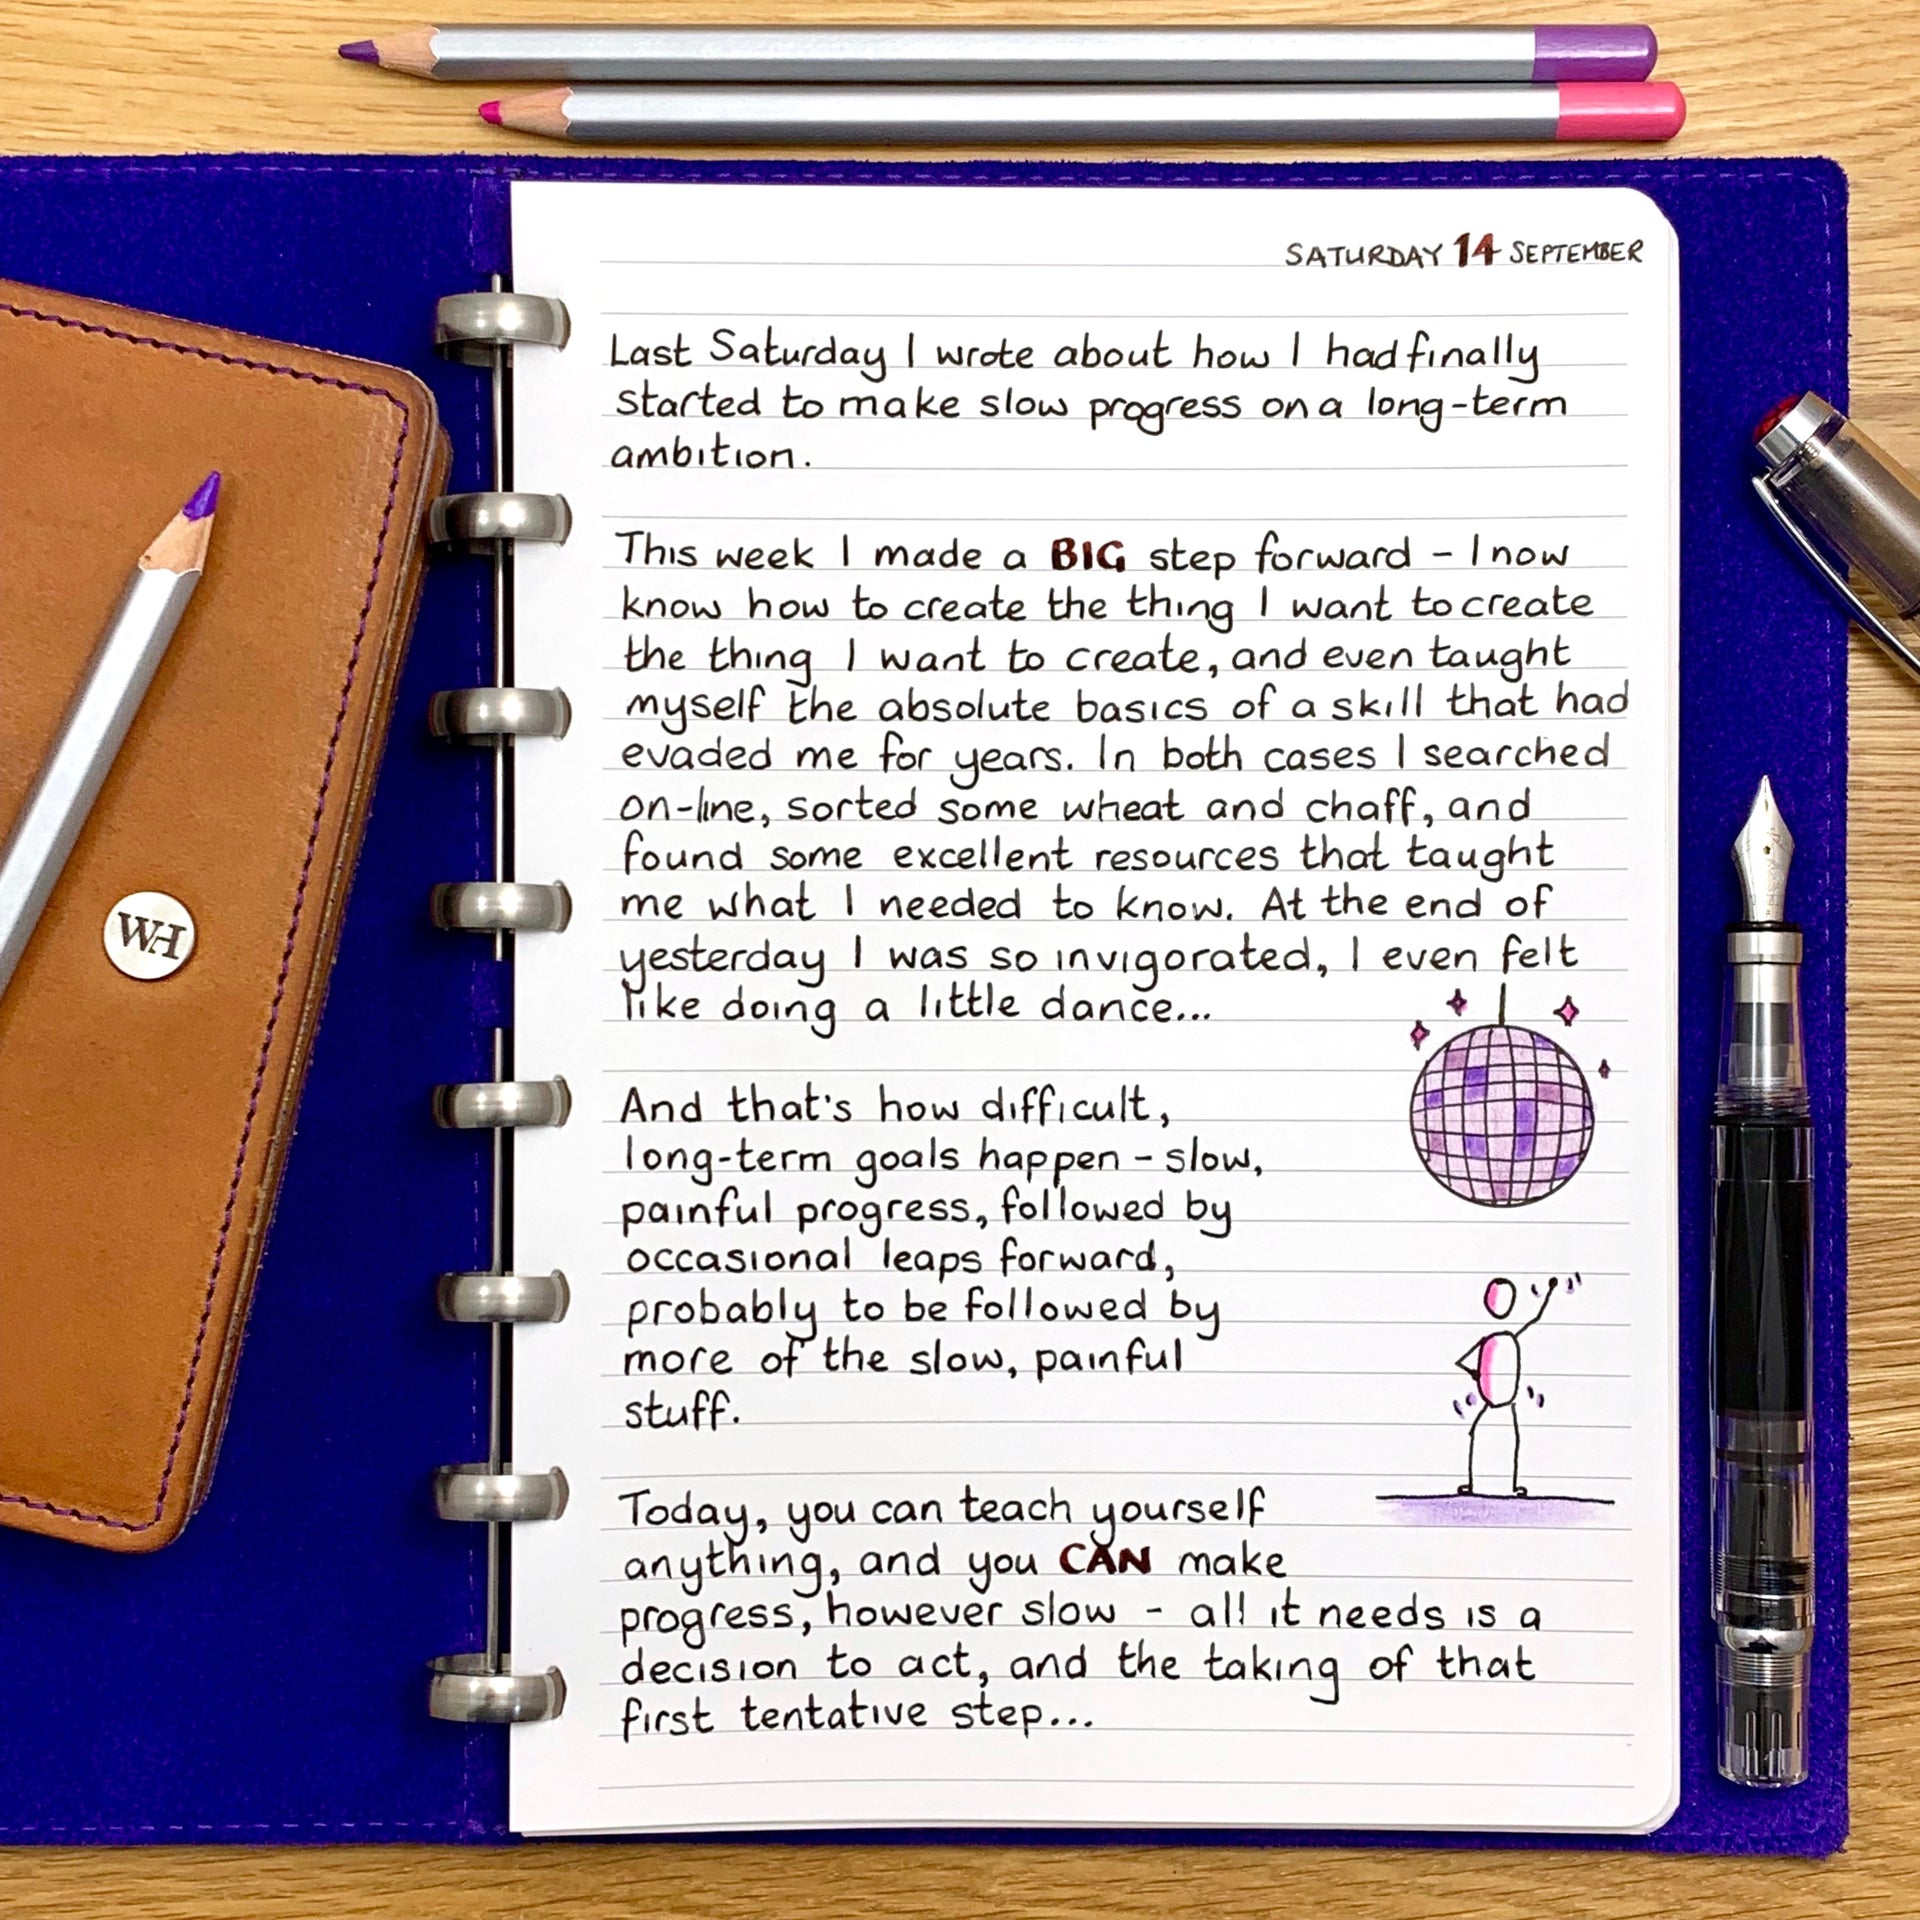 SATURDAY 14 SEPTEMBER
Last Saturday I wrote about how I had finally
started to make slow progress on a long-term
ambition.
This week I made a BIG step forward - I now
know how to create the thing I want to create
the thing I want to create, and even taught
myself the absolute basics of a skill that had
evaded me for years. In both cases I searched
on-line, sorted some wheat and chaff, and
found some excellent resources that taught
me what I needed to know. At the end of
yesterday I was so invigorated, I even felt
like doing a little dance...
And that's how difficult,
long-term goals happen - slow,
painful progress, followed by
occasional leaps forward,
probably to be followed by
more of the slow, painful
stuff.
Today, you can teach yourself
anything, and you CAN make
progress, however slow - all it needs is a
decision to act, and the taking of that
first tentative step...
WH